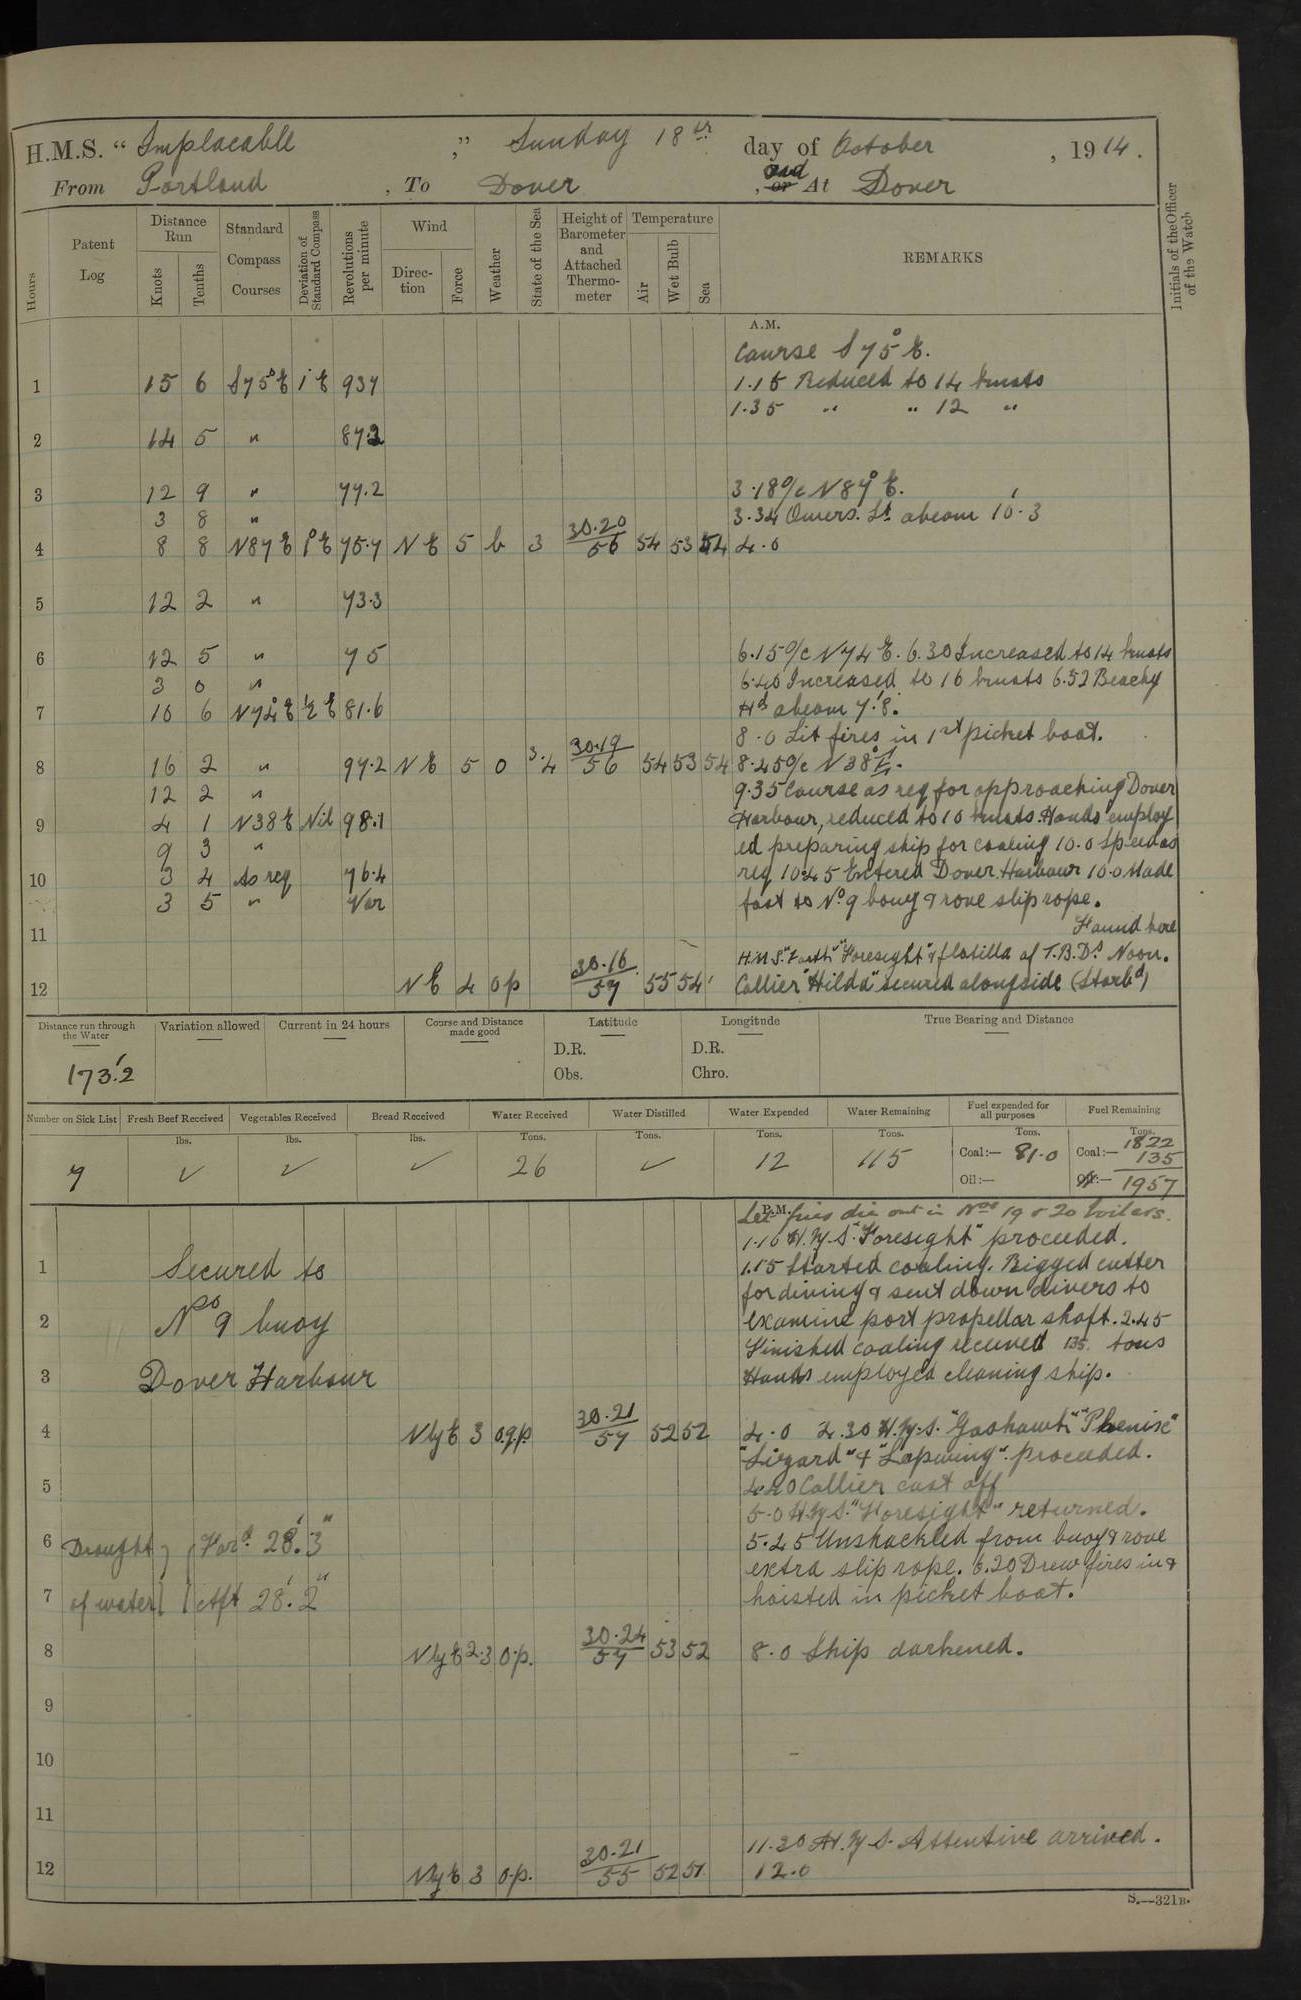 H.M.S. "Implacable," Sunday 18th day of October, 1914.
From Portland, To Dover, and or At Dover
Hours
Patent Log
Distance Run
Knots
Tenths
Standard Compass Courses
Deviation of Standard Compass
Revolutions per minute
Wind
Direction
Force
Weather
State of the Sea
Height of Barometer and Attached Thermometer
Temperature
Air
Wet Bulb
Sea
REMARKS
Initials of the Officer of the Watch
A.M.
Course S 75° E.
1 15 6 S 75° E 1° E 93.7 1.15 Reduced to 14 knots
1.35 " " 12 "
2 14 5 " 87.2
3 12 9 " 77.2 3.18 a/c N 87° E.
3 8 " 3.34 Owers Lt abeam 10'.3
4 8 8 N 87 E 1° E 75.7 N E 5 b 3 30.20/56 54 53 54 4.0
5 12 2 " 73.3
6 12 5 " 75 6.15 a/c N 74 E. 6.30 Increased to 14 knots
3 0 " 6.40 Increased to 16 knots 6.52 Beachy
7 10 6 N 74° E ½ E 81.6 Hd abeam 7'.8.
8.0 Lit fires in 1st picket boat.
8 16 2 " 97.2 N E 5 o 3.4 30.19/56 54 53 54 8.45 a/c N 38° E.
12 2 " 9.35 Course as req for approaching Dover
9 4 1 N 38 E Nil 98.1 Harbour, reduced to 10 knots. Hands employ
9 3 " ed preparing ship for coaling 10.0 Speed as
10 3 4 As req 76.4 req 10.45 Entered Dover Harbour 10.0 Made
3 5 " Var fast to No 9 bouy & rove slip rope.
11 Found here
H.M.S. "Forth" "Foresight" & flotilla of T.B.Ds Noon.
12 N E 4 o p 30.16/57 55 54 Collier "Hilda" secured alongside (Starbd)
Distance run through the Water
Variation allowed
Current in 24 hours
Course and Distance made good
Latitude
Longitude
True Bearing and Distance
D.R. D.R.
Obs. Chro.
173'.2
Number on Sick List
Fresh Beef Received
Vegetables Received
Bread Received
Water Received
Water Distilled
Water Expended
Water Remaining
Fuel expended for all purposes
Fuel Remaining
lbs. lbs. lbs. Tons. Tons. Tons. Tons. Tons. Tons.
7 ✓ ✓ ✓ 26 ✓ 12 115 Coal:— 81.0 Coal:— 1822
135
Oil:— Oil:— 1957
P.M.
Let fires die out in Nos 19 & 20 boilers.
1.10 H.M.S. "Foresight" proceeded.
1 Secured to 1.15 Started coaling. Rigged cutter
for diving & sent down divers to
2 No 9 buoy examine port propellar shaft. 2.45
Finished coaling received 135 tons
3 Dover Harbour Hands employed cleaning ship.
4 Nly E 3 o.q.p. 30.21/57 52 52 4.0 4.30 H.M.S. "Goshawk" "Phenix"
"Lizard" & "Lapwing" proceeded.
5 4.40 Collier cast off
5.0 H.M.S. "Foresight" returned.
6 Draught Ford 28'.3" 5.45 Unshackled from buoy & rove
extra slip rope. 6.20 Drew fires in &
7 of water Aft 28'.2" hoisted in picket boat.
8 Nly E 2.3 o.p. 30.24/57 53 52 8.0 Ship darkened.
9
10
11
11.20 H.M.S. Attentive arrived.
12 Nly E 3 o.p. 30.21/55 52 51 12.0
S.—321B.